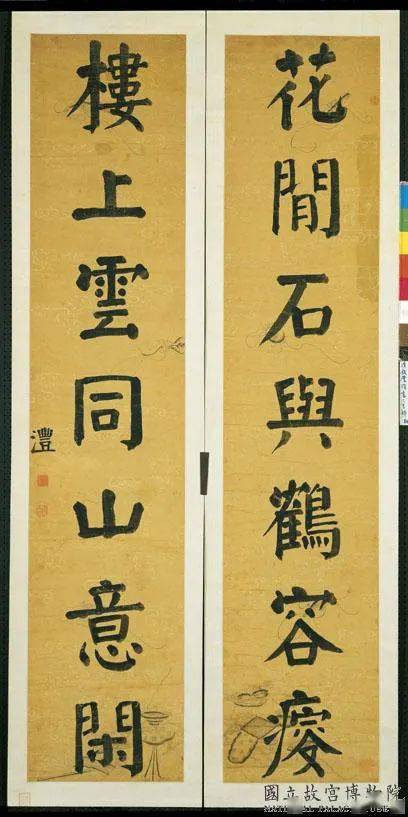 花閒石與鶴容瘦
樓上雲同山意閑
灃
國立故宮博物院